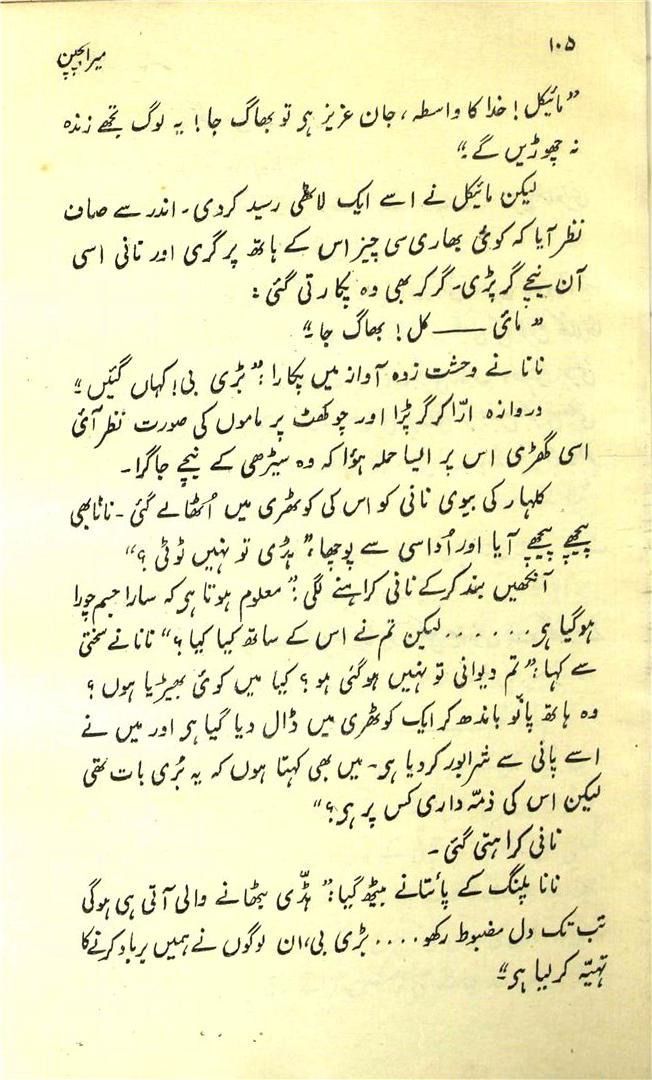 ۱۰۵
میرا بچپن
”مائیکل! خدا کا واسطہ، جان عزیز ہی تو بھاگ جا! یہ لوگ تجھے زندہ
نہ چھوڑیں گے“
لیکن مائیکل نے اسے ایک لاٹھی رسید کردی۔ اندر سے صاف
نظر آیا کہ کوئی بھاری سی چیز اس کے ہاتھ پر گری اور نانی اسی
آن نیچے گر پڑی۔ گر کر بھی وہ پکارتی گئی :
”مائی —— کل! بھاگ جا۔“
نانا نے وحشت زدہ آواز میں پکارا :”بڑی بی! کہاں گئیں۔“
دروازہ ارّا کر گر پڑا اور چوکھٹ پر ماموں کی صورت نظر آئی
اسی گھڑی اس پر ایسا حملہ ہؤا کہ وہ سیڑھی کے نیچے جا گرا۔
کلہار کی بیوی نانی کو اس کی کوٹھری میں اُٹھا لے گئی ۔ نانا بھی
پیچھے پیچھے آیا اور اُداسی سے پوچھا،”ہڈّی تو نہیں ٹوٹی ؟“
آنکھیں بند کرکے نانی کراہنے لگی :”معلوم ہوتا ہی کہ سارا جسم چورا
ہوگیا ہی ....... لیکن تم نے اس کے ساتھ کیا کیا ؟“ نانا نے سختی
سے کہا :”تم دیوانی تو نہیں ہوگئی ہو ؟ کیا میں کوئی بھیڑیا ہوں ؟
وہ ہاتھ پانّو باندھ کر ایک کوٹھری میں ڈال دیا گیا ہی اور میں نے
اسے پانی سے شرابور کردیا ہی۔ میں بھی کہتا ہوں کہ یہ بُری بات تھی
لیکن اس کی ذمّہ داری کس پر ہی ؟“
نانی کراہتی گئی ۔
نانا پلنگ کے پائتانے بیٹھ گیا :”ہڈّی بٹھانے والی آتی ہی ہوگی
تب تک دل مضبوط رکھو .... بڑی بی، ان لوگوں نے ہمیں برباد کرنے کا
تہیّہ کرلیا ہی“